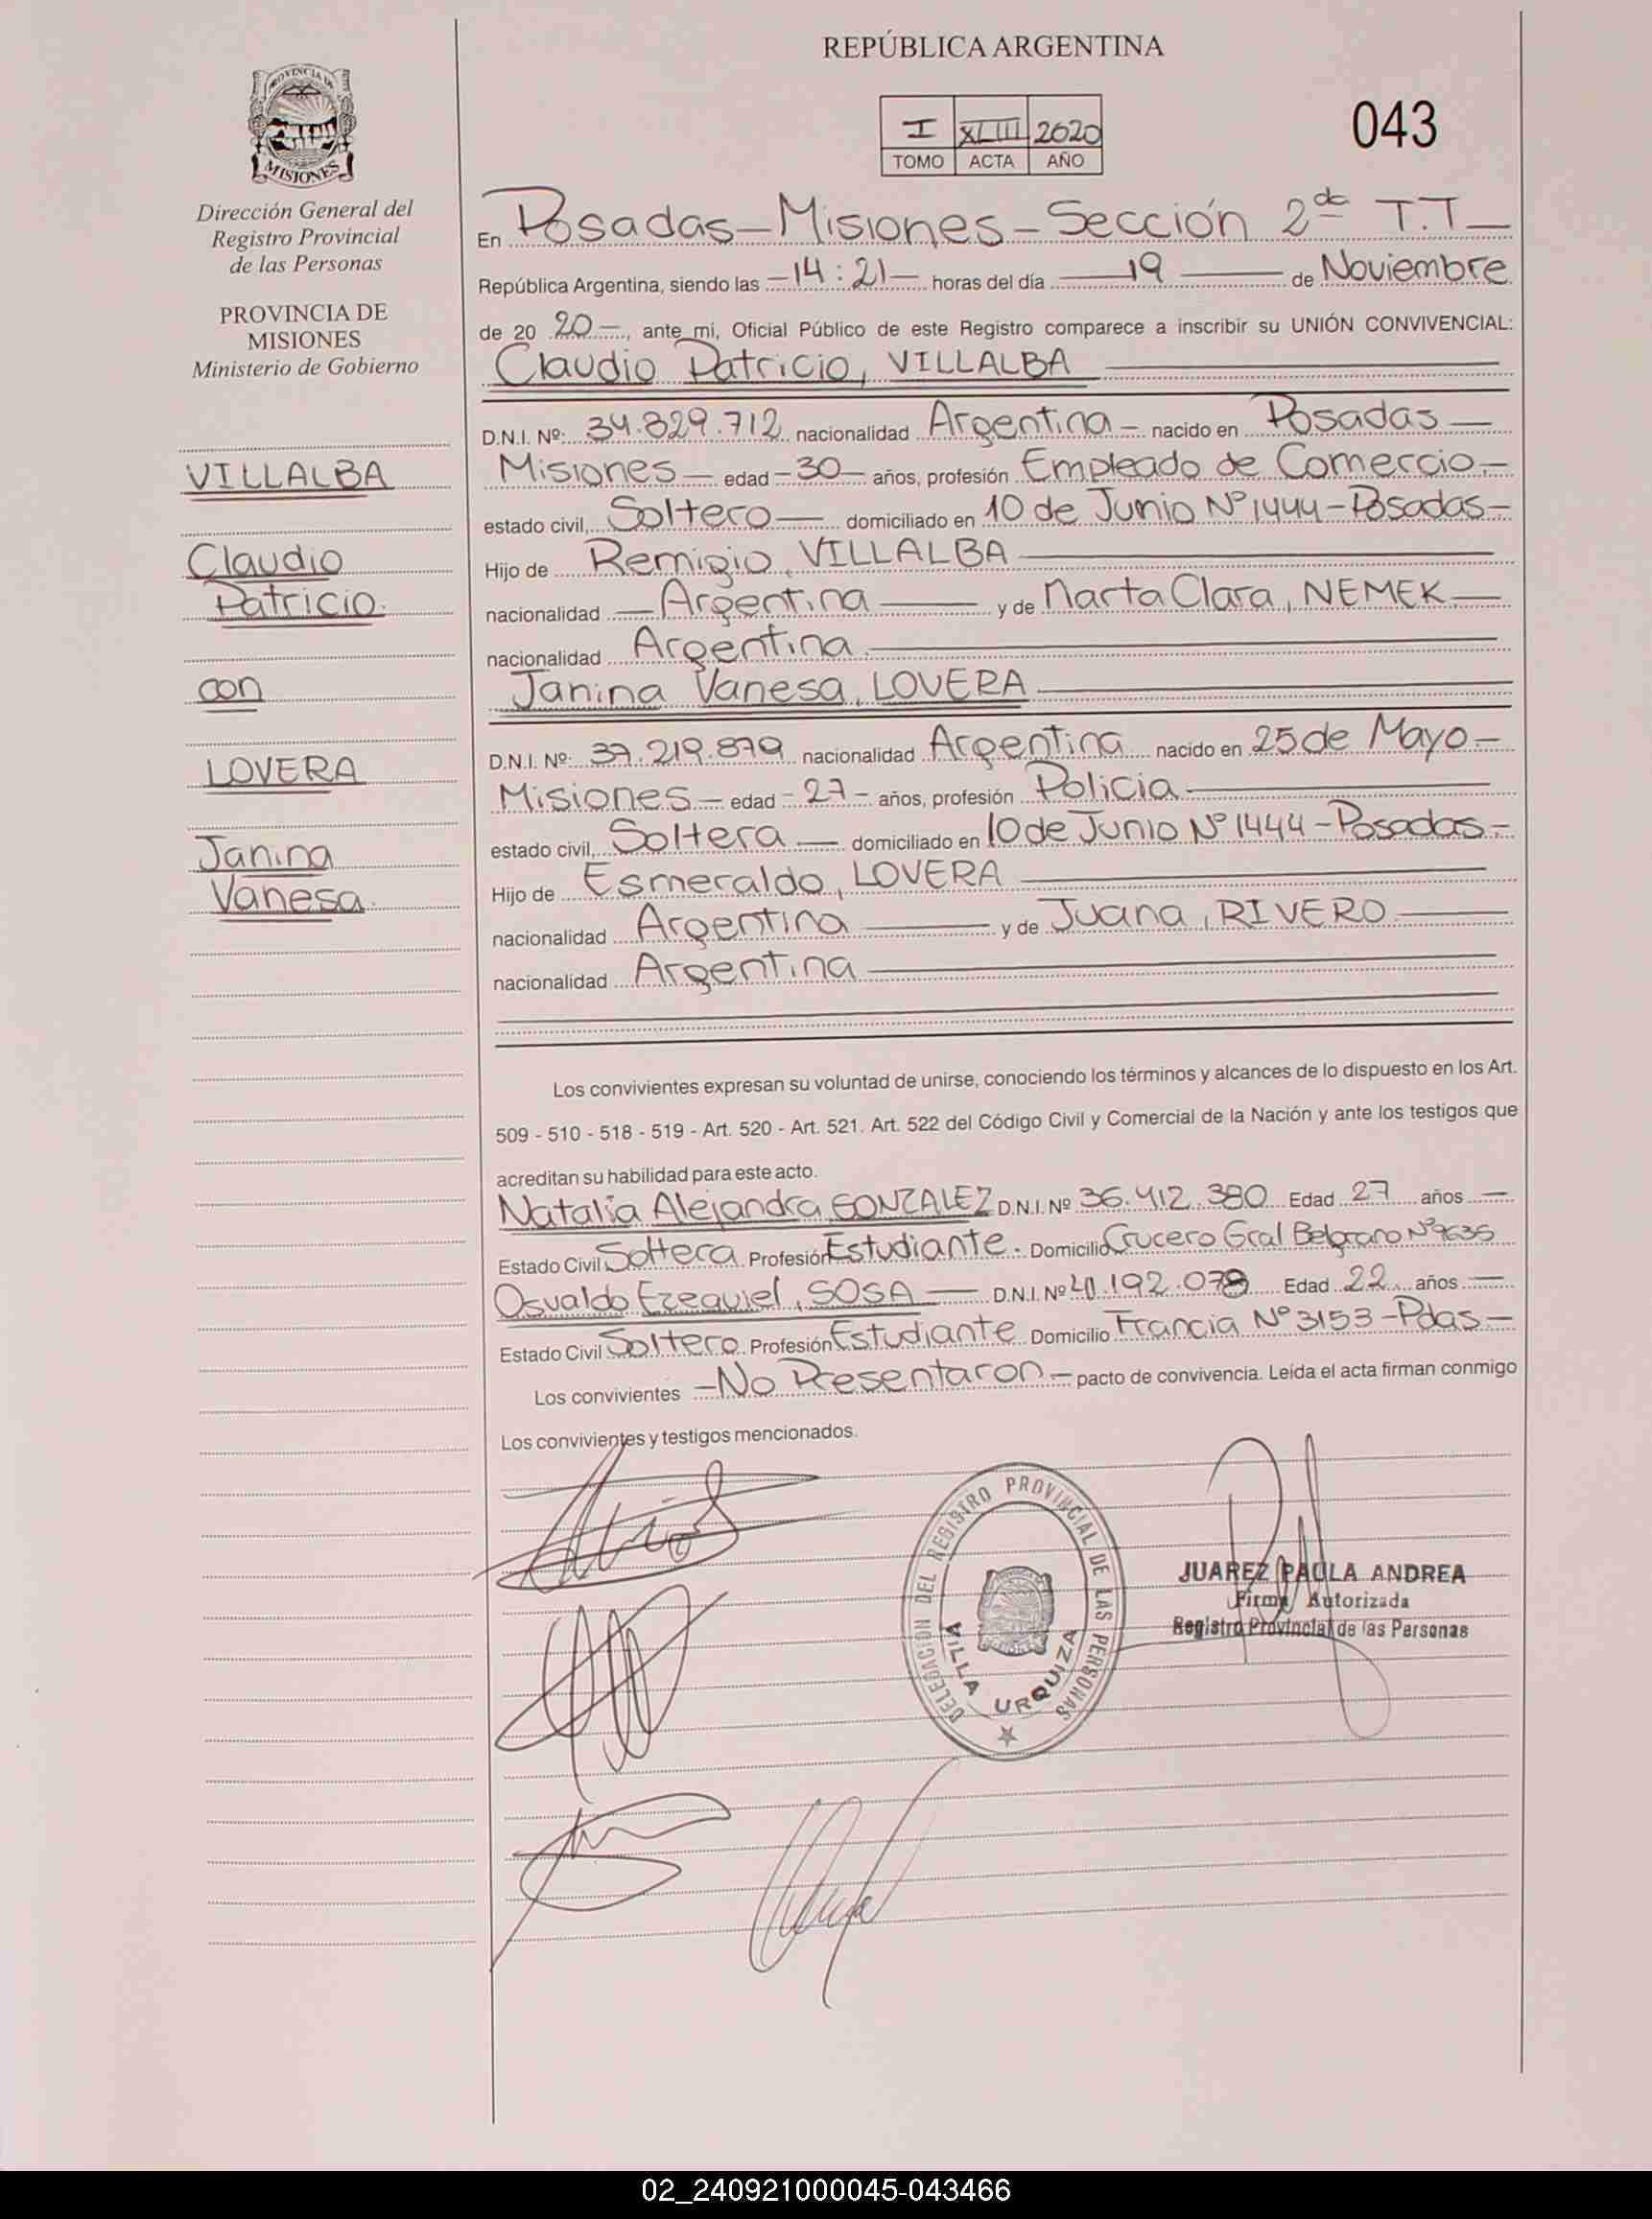 REPÚBLICA ARGENTINA
PROVINCIA DE
MISIONES
I XLIII 2020
TOMO ACTA AÑO
043
Dirección General del
Registro Provincial
de las Personas
PROVINCIA DE
MISIONES
Ministerio de Gobierno
VILLALBA
Claudio
Patricio.
con
LOVERA
Janina
Vanesa.
En Posadas - Misiones - Sección 2da T.T
República Argentina, siendo las - 14:21 - horas del día 19 de Noviembre
de 20 20 -, ante mi, Oficial Público de este Registro comparece a inscribir su UNIÓN CONVIVENCIAL:
Claudio Patricio, VILLALBA
D.N.I. Nº: 34.829.712 nacionalidad Argentina - nacido en Posadas -
Misiones - edad - 30 - años, profesión Empleado de Comercio -
estado civil, Soltero - domiciliado en 10 de Junio Nº 1444 - Posadas -
Hijo de Remigio, VILLALBA
nacionalidad - Argentina - y de Marta Clara, NEMEK. -
nacionalidad Argentina
Janina Vanesa, LOVERA
D.N.I. Nº: 37.219.879 nacionalidad Argentina nacido en 25 de Mayo -
Misiones - edad - 27 - años, profesión Policia
estado civil, Soltera - domiciliado en 10 de Junio Nº 1444 - Posadas -
Hijo de Esmeraldo, LOVERA
nacionalidad Argentina - y de Juana, RIVERO
nacionalidad Argentina
Los convivientes expresan su voluntad de unirse, conociendo los términos y alcances de lo dispuesto en los Art.
509 - 510 - 518 - 519 - Art. 520 - Art. 521. Art. 522 del Código Civil y Comercial de la Nación y ante los testigos que
acreditan su habilidad para este acto.
Natalia Alejandra GONZALEZ D.N.I. Nº 36.412.380 Edad 27 años -
Estado Civil Soltera Profesión Estudiante. Domicilio Crucero Gral Belgrano Nº 9635
Osvaldo Ezequiel, SOSA - D.N.I. Nº 40.192.078 Edad 22 años -
Estado Civil Soltero Profesión Estudiante Domicilio Francia Nº 3153 - Pdas -
Los convivientes - No Presentaron - pacto de convivencia. Leída el acta firman conmigo
Los convivientes y testigos mencionados.
DELEGACION DEL REGISTRO PROVINCIAL DE LAS PERSONAS
VILLA URQUIZA
JUAREZ PAULA ANDREA
Firma Autorizada
Registro Provincial de las Personas
02_240921000045-043466